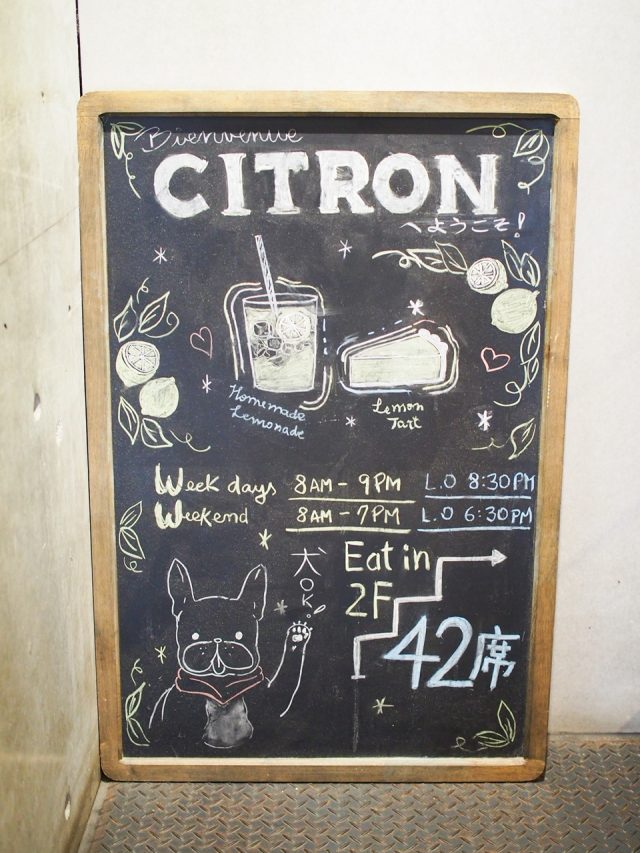 Bienvenue
CITRON
へようこそ!
Homemade
Lemonade
Lemon
Tart
Week days 8AM - 9PM L.O 8:30PM
Weekend 8AM - 7PM L.O 6:30PM
犬OK!
Eat in
2F
42席